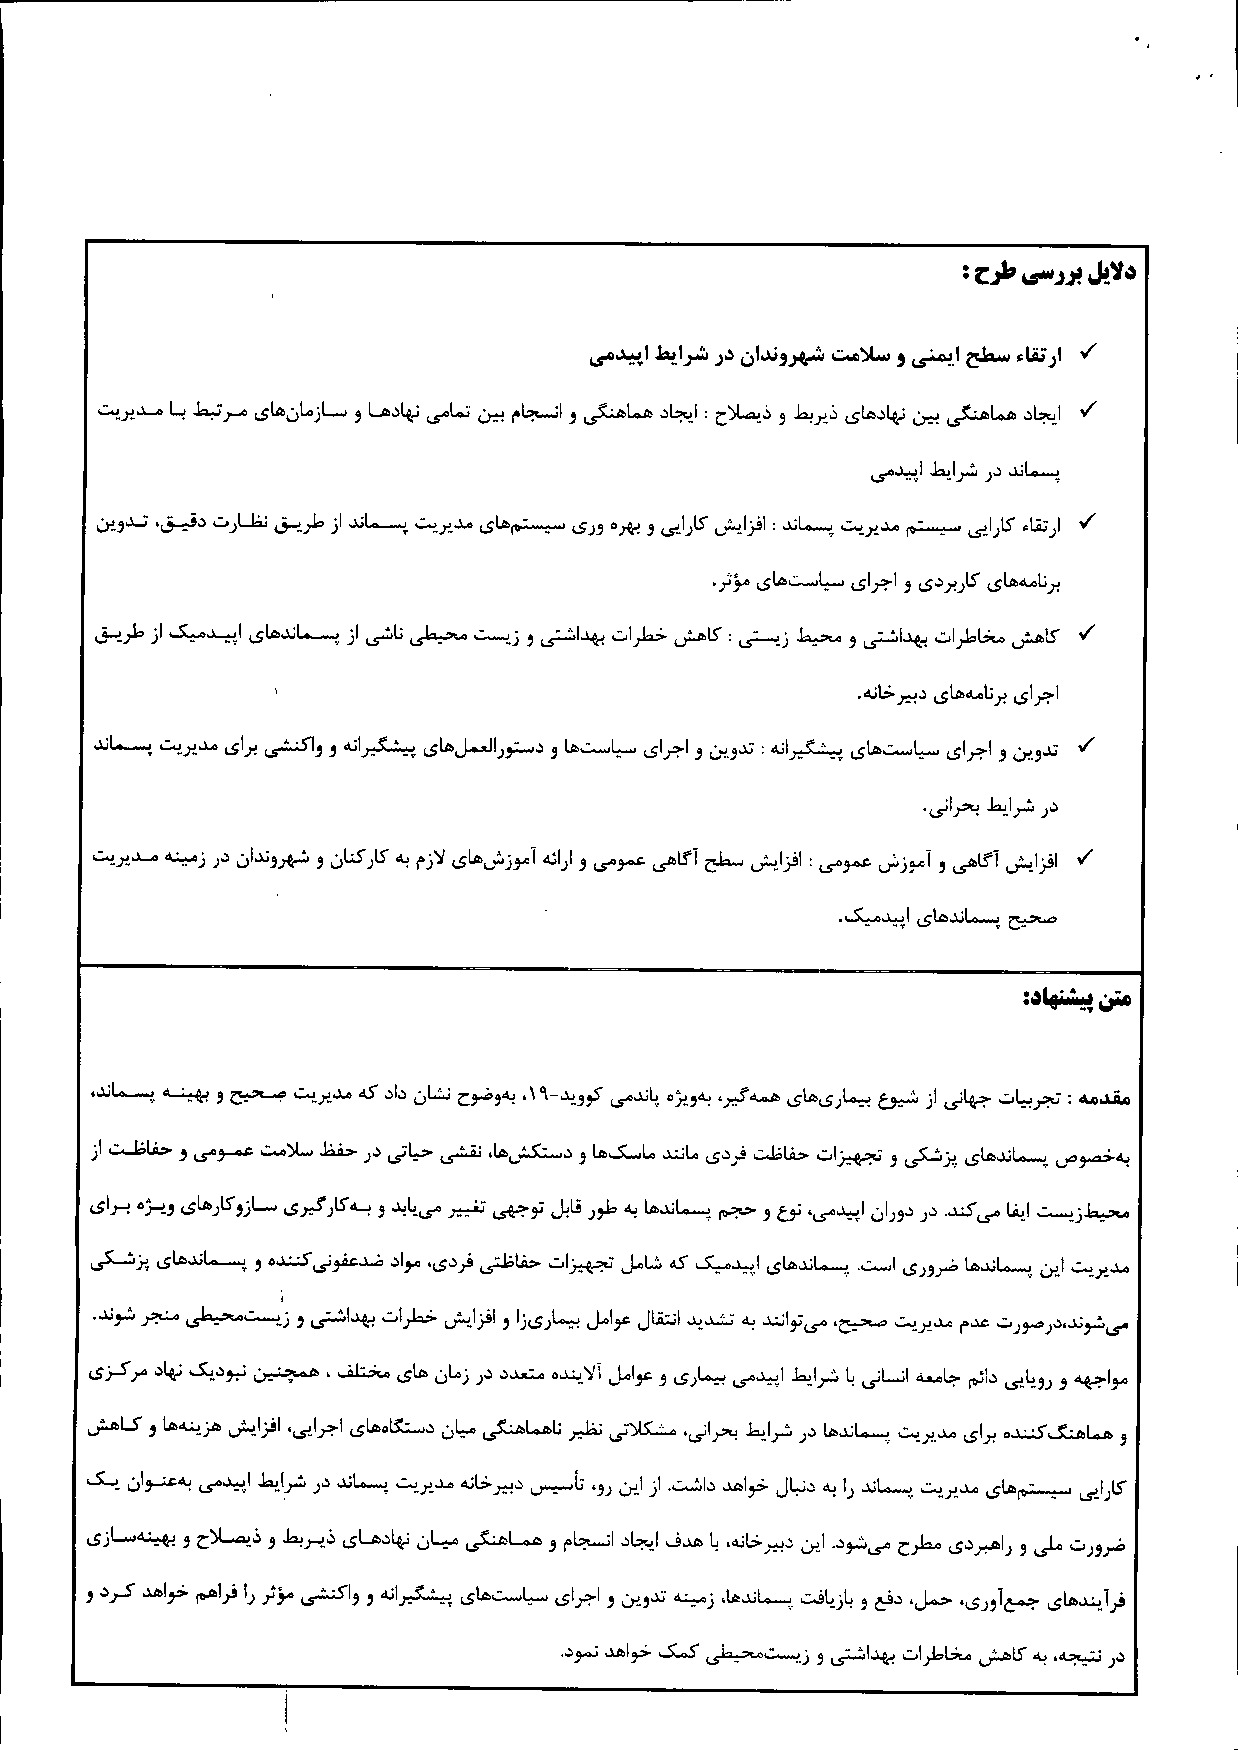 دلایل بررسی طرح :
✓ ارتقاء سطح ایمنی و سلامت شهروندان در شرایط اپیدمی
✓ ایجاد هماهنگی بین نهادهای ذیربط و ذیصلاح : ایجاد هماهنگی و انسجام بین تمامی نهادها و سازمان‌های مرتبط با مدیریت
پسماند در شرایط اپیدمی
✓ ارتقاء کارایی سیستم مدیریت پسماند : افزایش کارایی و بهره وری سیستم‌های مدیریت پسماند از طریق نظارت دقیق، تدوین
برنامه‌های کاربردی و اجرای سیاست‌های مؤثر.
✓ کاهش مخاطرات بهداشتی و محیط زیستی : کاهش خطرات بهداشتی و زیست محیطی ناشی از پسماندهای اپیدمیک از طریق
اجرای برنامه‌های دبیرخانه.
✓ تدوین و اجرای سیاست‌های پیشگیرانه : تدوین و اجرای سیاست‌ها و دستورالعمل‌های پیشگیرانه و واکنشی برای مدیریت پسماند
در شرایط بحرانی.
✓ افزایش آگاهی و آموزش عمومی : افزایش سطح آگاهی عمومی و ارائه آموزش‌های لازم به کارکنان و شهروندان در زمینه مدیریت
صحیح پسماندهای اپیدمیک.
متن پیشنهاد:
مقدمه : تجربیات جهانی از شیوع بیماری‌های همه‌گیر، به‌ویژه پاندمی کووید-۱۹، به‌وضوح نشان داد که مدیریت صحیح و بهینه پسماند،
به‌خصوص پسماندهای پزشکی و تجهیزات حفاظت فردی مانند ماسک‌ها و دستکش‌ها، نقشی حیاتی در حفظ سلامت عمومی و حفاظت از
محیط‌زیست ایفا می‌کند. در دوران اپیدمی، نوع و حجم پسماندها به طور قابل توجهی تغییر می‌یابد و به‌کارگیری سازوکارهای ویژه برای
مدیریت این پسماندها ضروری است. پسماندهای اپیدمیک که شامل تجهیزات حفاظتی فردی، مواد ضدعفونی‌کننده و پسماندهای پزشکی
می‌شوند،درصورت عدم مدیریت صحیح، می‌توانند به تشدید انتقال عوامل بیماری‌زا و افزایش خطرات بهداشتی و زیست‌محیطی منجر شوند.
مواجهه و رویایی دائم جامعه انسانی با شرایط اپیدمی بیماری و عوامل آلاینده متعدد در زمان های مختلف ، همچنین نبودیک نهاد مرکزی
و هماهنگ‌کننده برای مدیریت پسماندها در شرایط بحرانی، مشکلاتی نظیر ناهماهنگی میان دستگاه‌های اجرایی، افزایش هزینه‌ها و کاهش
کارایی سیستم‌های مدیریت پسماند را به دنبال خواهد داشت. از این رو، تأسیس دبیرخانه مدیریت پسماند در شرایط اپیدمی به‌عنوان یک
ضرورت ملی و راهبردی مطرح می‌شود. این دبیرخانه، با هدف ایجاد انسجام و هماهنگی میان نهادهای ذیربط و ذیصلاح و بهینه‌سازی
فرآیندهای جمع‌آوری، حمل، دفع و بازیافت پسماندها، زمینه تدوین و اجرای سیاست‌های پیشگیرانه و واکنشی مؤثر را فراهم خواهد کرد و
در نتیجه، به کاهش مخاطرات بهداشتی و زیست‌محیطی کمک خواهد نمود.